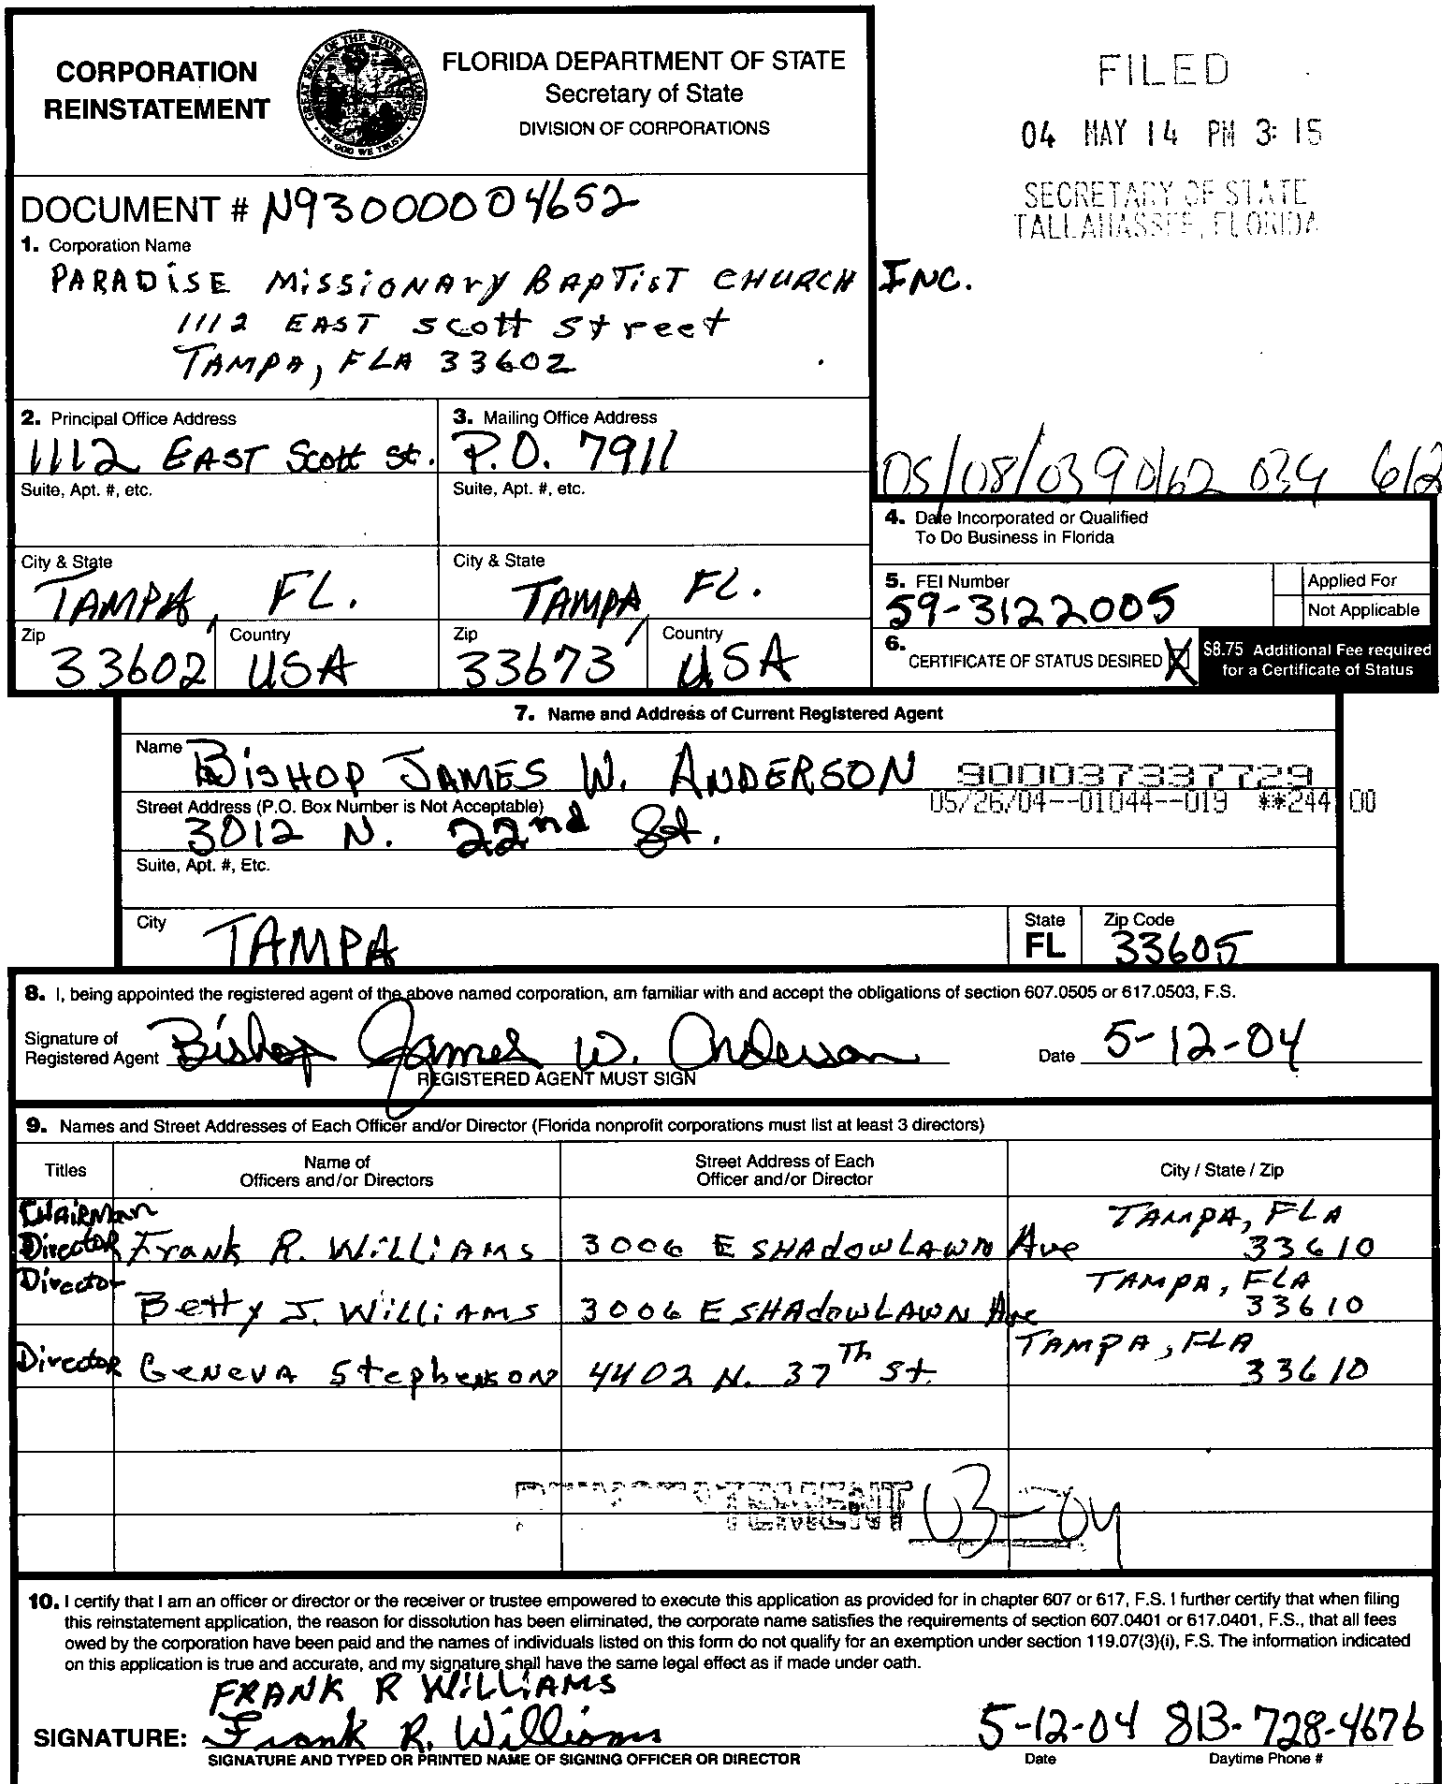 CORPORATION
REINSTATEMENT
GREAT SEAL OF THE STATE OF FLORIDA
IN GOD WE TRUST
FLORIDA DEPARTMENT OF STATE
Secretary of State
DIVISION OF CORPORATIONS
FILED
04 MAY 14 PM 3:15
SECRETARY OF STATE
TALLAHASSEE, FLORIDA
DOCUMENT # N93000004652
1. Corporation Name
PARADISE MISSIONARY BAPTIST CHURCH INC.
1112 EAST Scott Street
TAMPA, FLA 33602
2. Principal Office Address
1112 EAST Scott St.
Suite, Apt. #, etc.
City & State
TAMPA, FL.
Zip
33602
Country
USA
3. Mailing Office Address
P.O. 7911
Suite, Apt. #, etc.
City & State
TAMPA, FL.
Zip
33673
Country
USA
05/08/03 90162 034 612
4. Date Incorporated or Qualified
To Do Business in Florida
5. FEI Number
59-3122005
Applied For
Not Applicable
6. CERTIFICATE OF STATUS DESIRED X
$8.75 Additional Fee required
for a Certificate of Status
7. Name and Address of Current Registered Agent
Name BISHOP JAMES W. ANDERSON
900037337729
05/26/04--01044--019 **244 00
Street Address (P.O. Box Number is Not Acceptable)
3012 N. 22nd St.
Suite, Apt. #, Etc.
City TAMPA
State
FL
Zip Code
33605
8. I, being appointed the registered agent of the above named corporation, am familiar with and accept the obligations of section 607.0505 or 617.0503, F.S.
Signature of
Registered Agent Bishop James W. Anderson
Date 5-12-04
REGISTERED AGENT MUST SIGN
9. Names and Street Addresses of Each Officer and/or Director (Florida nonprofit corporations must list at least 3 directors)
Titles
Name of
Officers and/or Directors
Street Address of Each
Officer and/or Director
City / State / Zip
CHAIRMAN
Director Frank R. Williams 3006 E SHADOWLAWN Ave TAMPA, FLA 33610
Director Betty J. Williams 3006 E SHADOWLAWN Ave TAMPA, FLA 33610
Director Geneva Stephenson 4402 N. 37Th St. TAMPA, FLA 33610
REINSTATEMENT 03-04
10. I certify that I am an officer or director or the receiver or trustee empowered to execute this application as provided for in chapter 607 or 617, F.S. I further certify that when filing
this reinstatement application, the reason for dissolution has been eliminated, the corporate name satisfies the requirements of section 607.0401 or 617.0401, F.S., that all fees
owed by the corporation have been paid and the names of individuals listed on this form do not qualify for an exemption under section 119.07(3)(i), F.S. The information indicated
on this application is true and accurate, and my signature shall have the same legal effect as if made under oath.
FRANK R WILLIAMS
SIGNATURE: Frank R. Williams 5-12-04 813-728-4676
SIGNATURE AND TYPED OR PRINTED NAME OF SIGNING OFFICER OR DIRECTOR
Date
Daytime Phone #